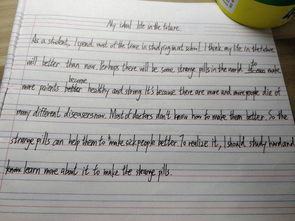 My ideal life in the future
As a student, I spend most of the time in studying in at school. I think my life in the future
will better than now. Perhaps there will be some strange pills in the world to make
become
more patients better healthy and strong. It's because there are more and more people die of
many different diseases now. Most of doctors don't know how to make them better. So the
strange pills can help them to make sick people better. To realize it, I should study hard and
know learn more about it to make the strange pills.